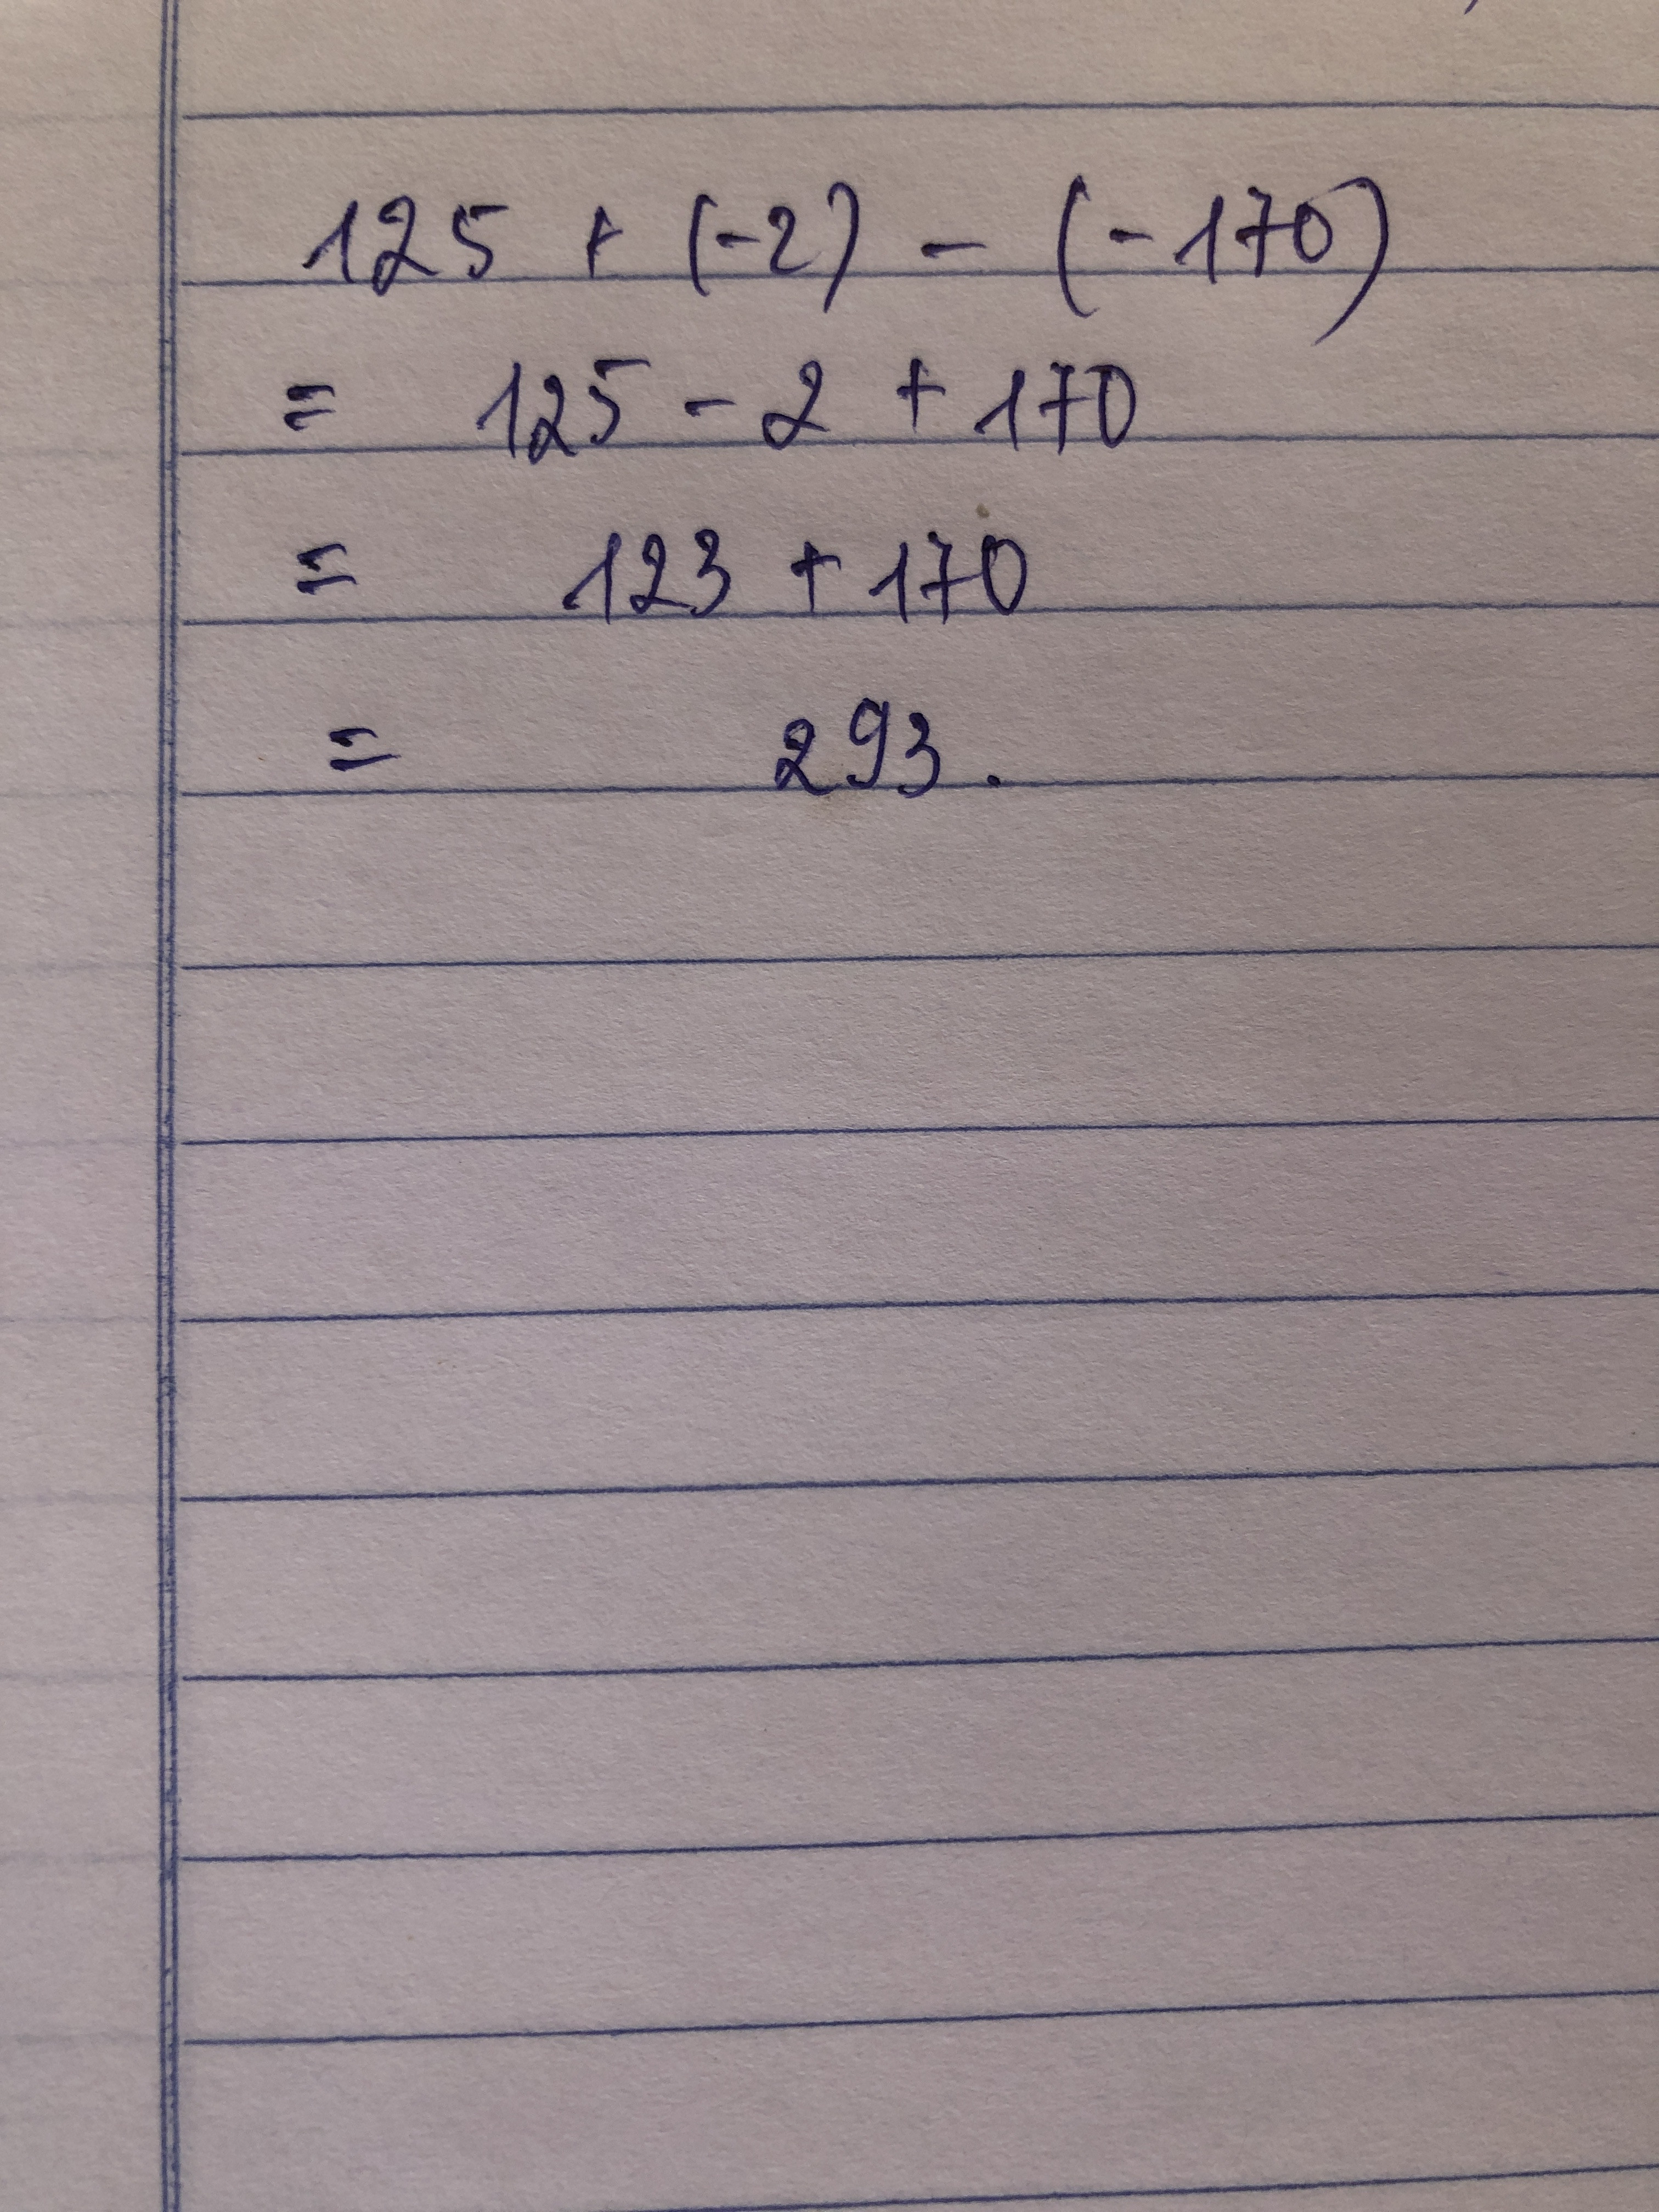 125 + (-2) - (-170)
= 125 - 2 + 170
= 123 + 170
= 293.